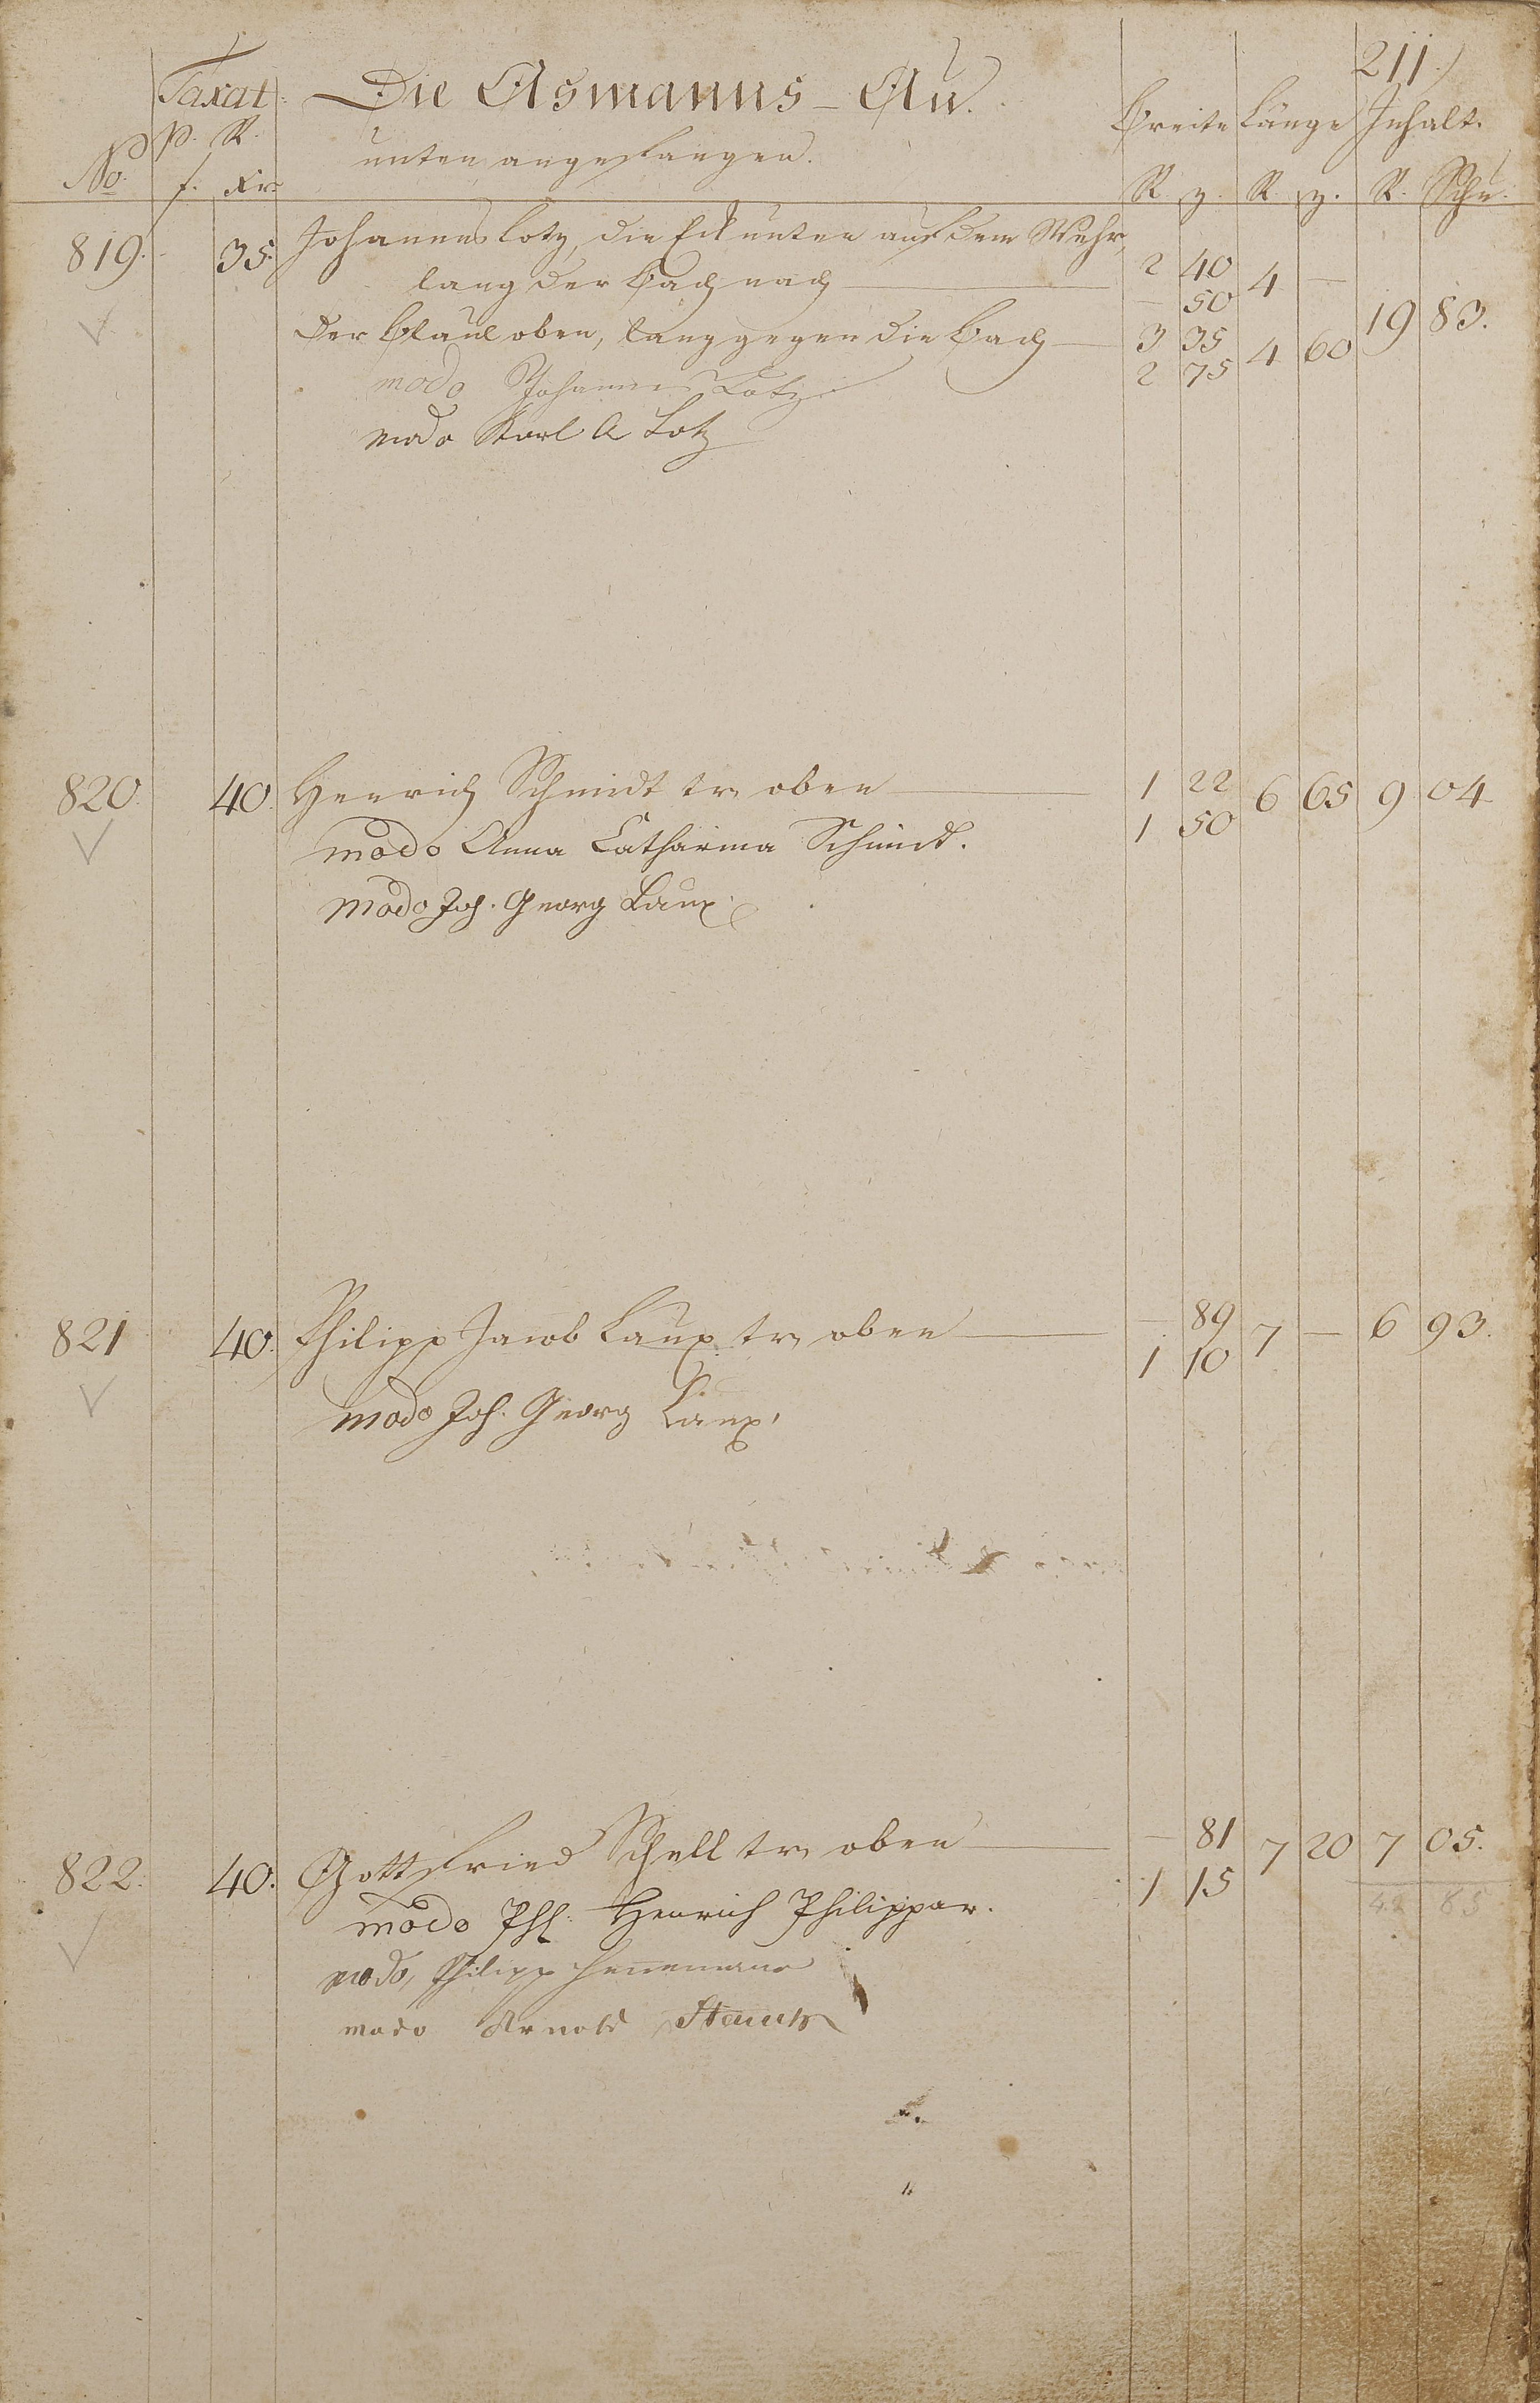 211.)
Taxat. Die Asmanns-Au. Breite Länge Inhalt.
p. R. unten angefangen.
No. f. Xr. R. z. R. z. R. Schu.
819. 35. Johannes Lotz, die Eck unten auf dem Wehr, 2 40 4 —
lang der Bach nach — 50 19 83.
der oben, lang gegen die Bach 3 35 4 60
modo Johannes Lotz 2 75
modo Karl A Lotz
820. 40. Henrich Schmidt tr. oben 1 22 6 65 9 04
modo Anna Catharina Schmidt. 1 50
modo Joh. Georg Laux.
821 40. Philipp Jacob Laux tr. oben — 89 7 — 6 93.
1 10
modo Joh. Georg Laux,
822. 40. Gottfried Schell tr. oben — 81 7 20 7 05.
modo Phl: Henrich Philippar. 1 15 42 85
modo, Philipp Hennemann
modo Arnold